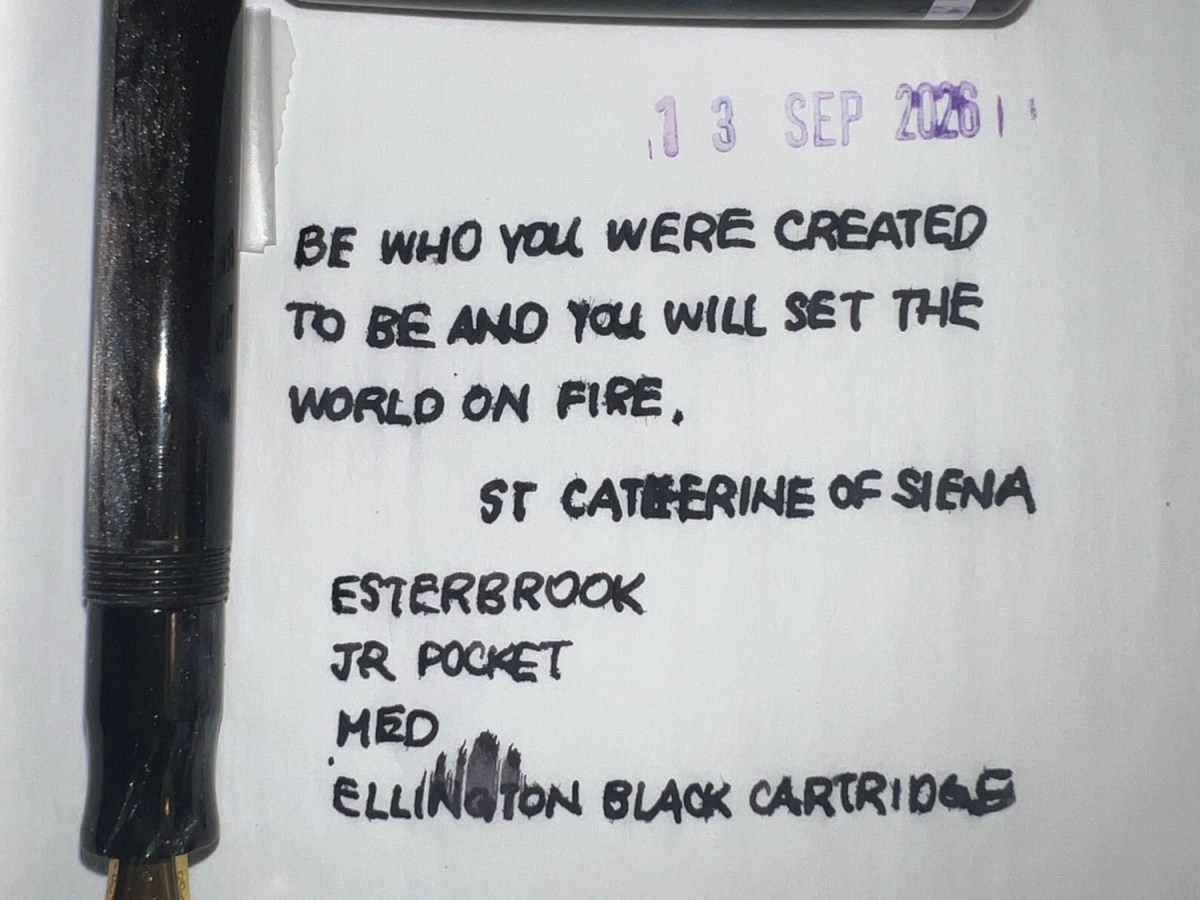 13 SEP 2026
BE WHO YOU WERE CREATED
TO BE AND YOU WILL SET THE
WORLD ON FIRE.
ST CATHERINE OF SIENA
ESTERBROOK
JR POCKET
MED
ELLINGTON BLACK CARTRIDGE